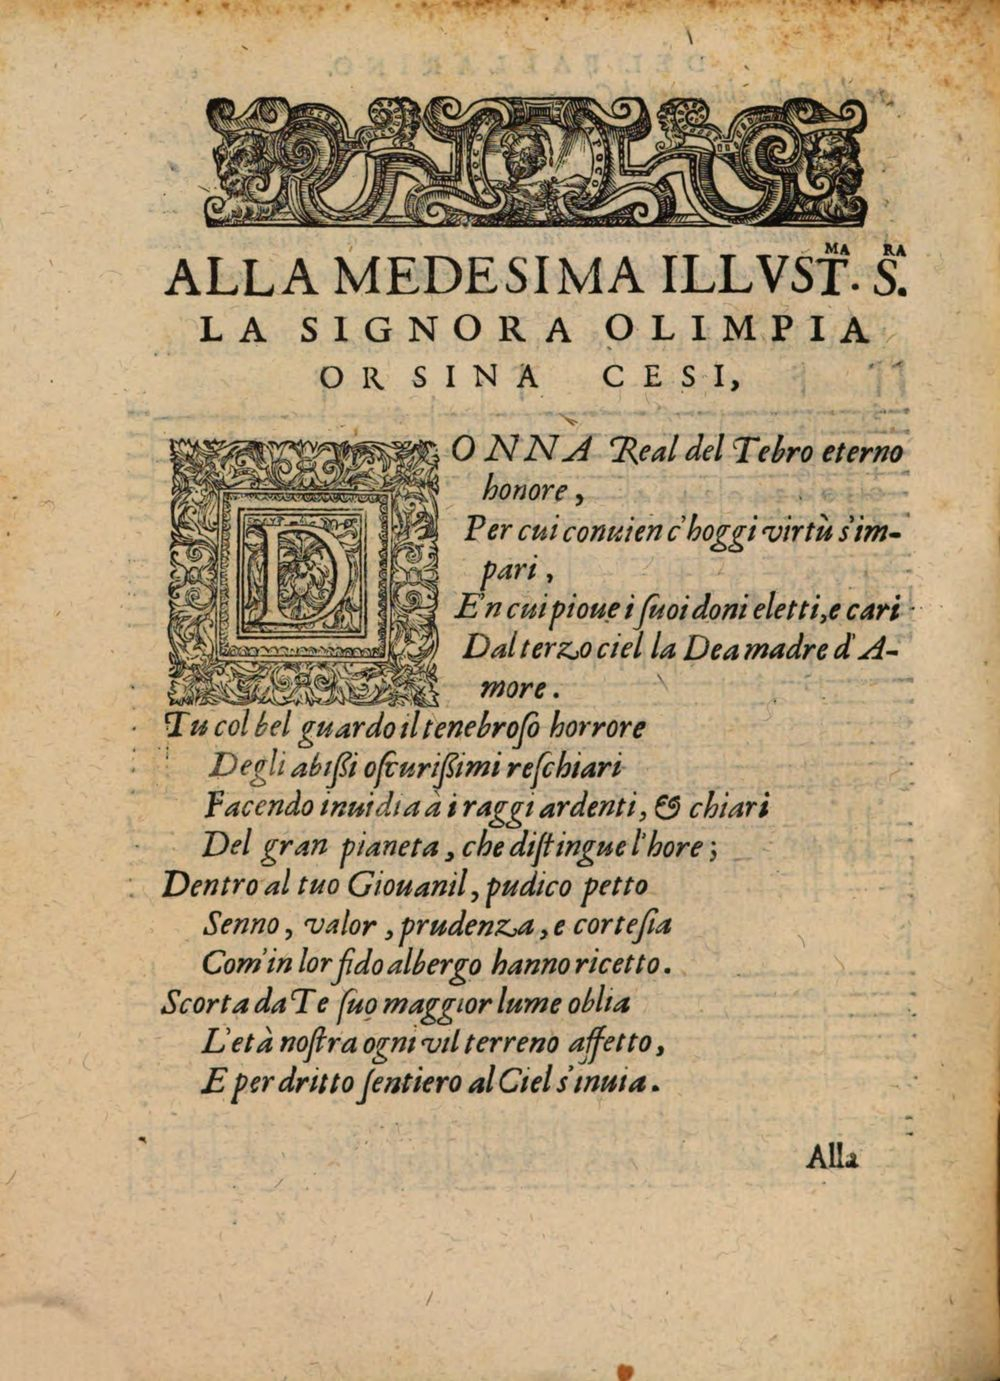 ALLA MEDESIMA ILLVST.MA S.RA
LA SIGNORA OLIMPIA
ORSINA CESI,
DONNA Real del Tebro eterno
honore,
Per cui conuien c'hoggi virtù s'im-
pari,
E'n cui pioue i ſuoi doni eletti, e cari
Dal terzo ciel la Dea madre d'A-
more.
Tu col bel guardo il tenebroſo horrore
Degli abißi oſcurißimi reſchiari
Facendo inuidia à i raggi ardenti, & chiari
Del gran pianeta, che diſtingue l'hore;
Dentro al tuo Giouanil, pudico petto
Senno, valor, prudenza, e corteſia
Com'in lor fido albergo hanno ricetto.
Scorta da Te ſuo maggior lume oblia
L'età noſtra ogni vil terreno affetto,
E per dritto ſentiero al Ciel s'inuia.
Alla